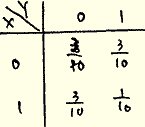 X Y 0 1
0 3/10 3/10
1 3/10 1/10